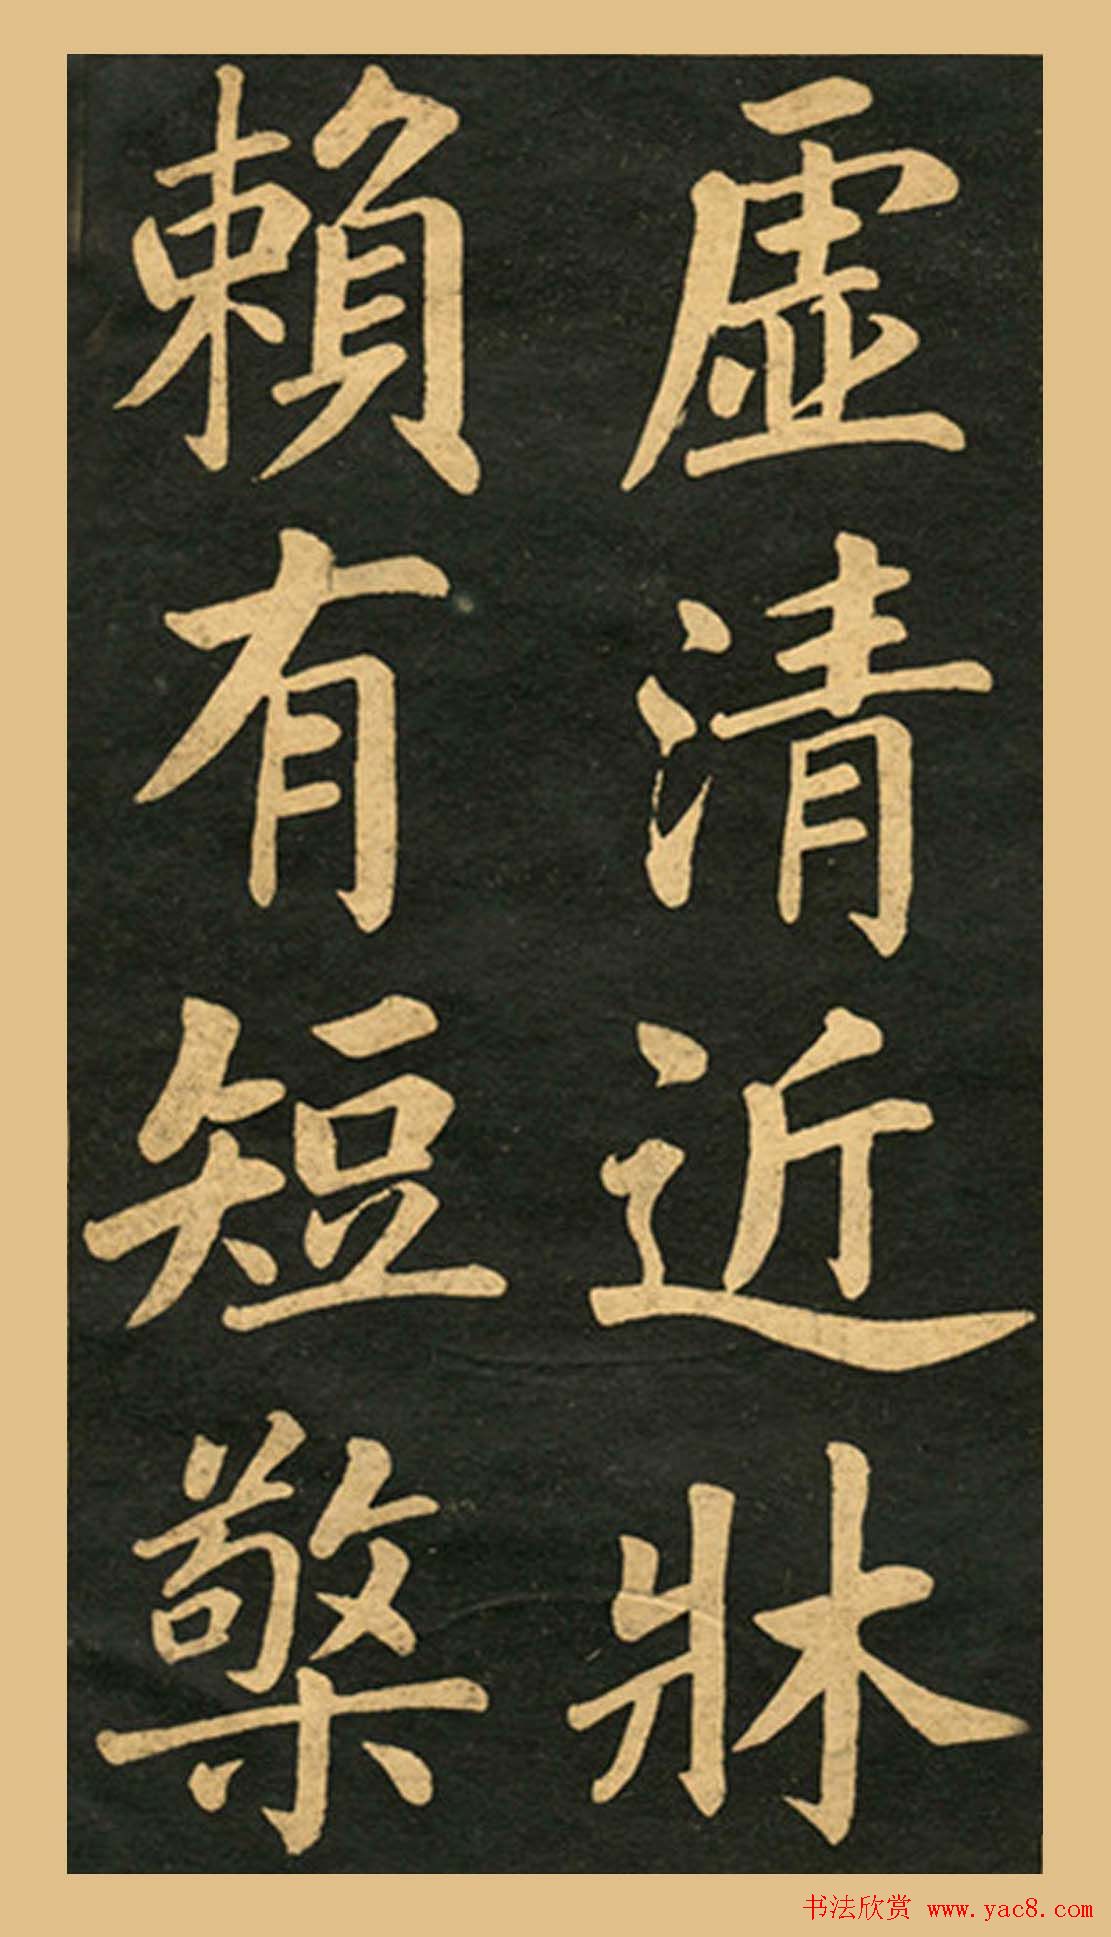 虛清近牀
賴有短檠
书法欣赏 www.yac8.com